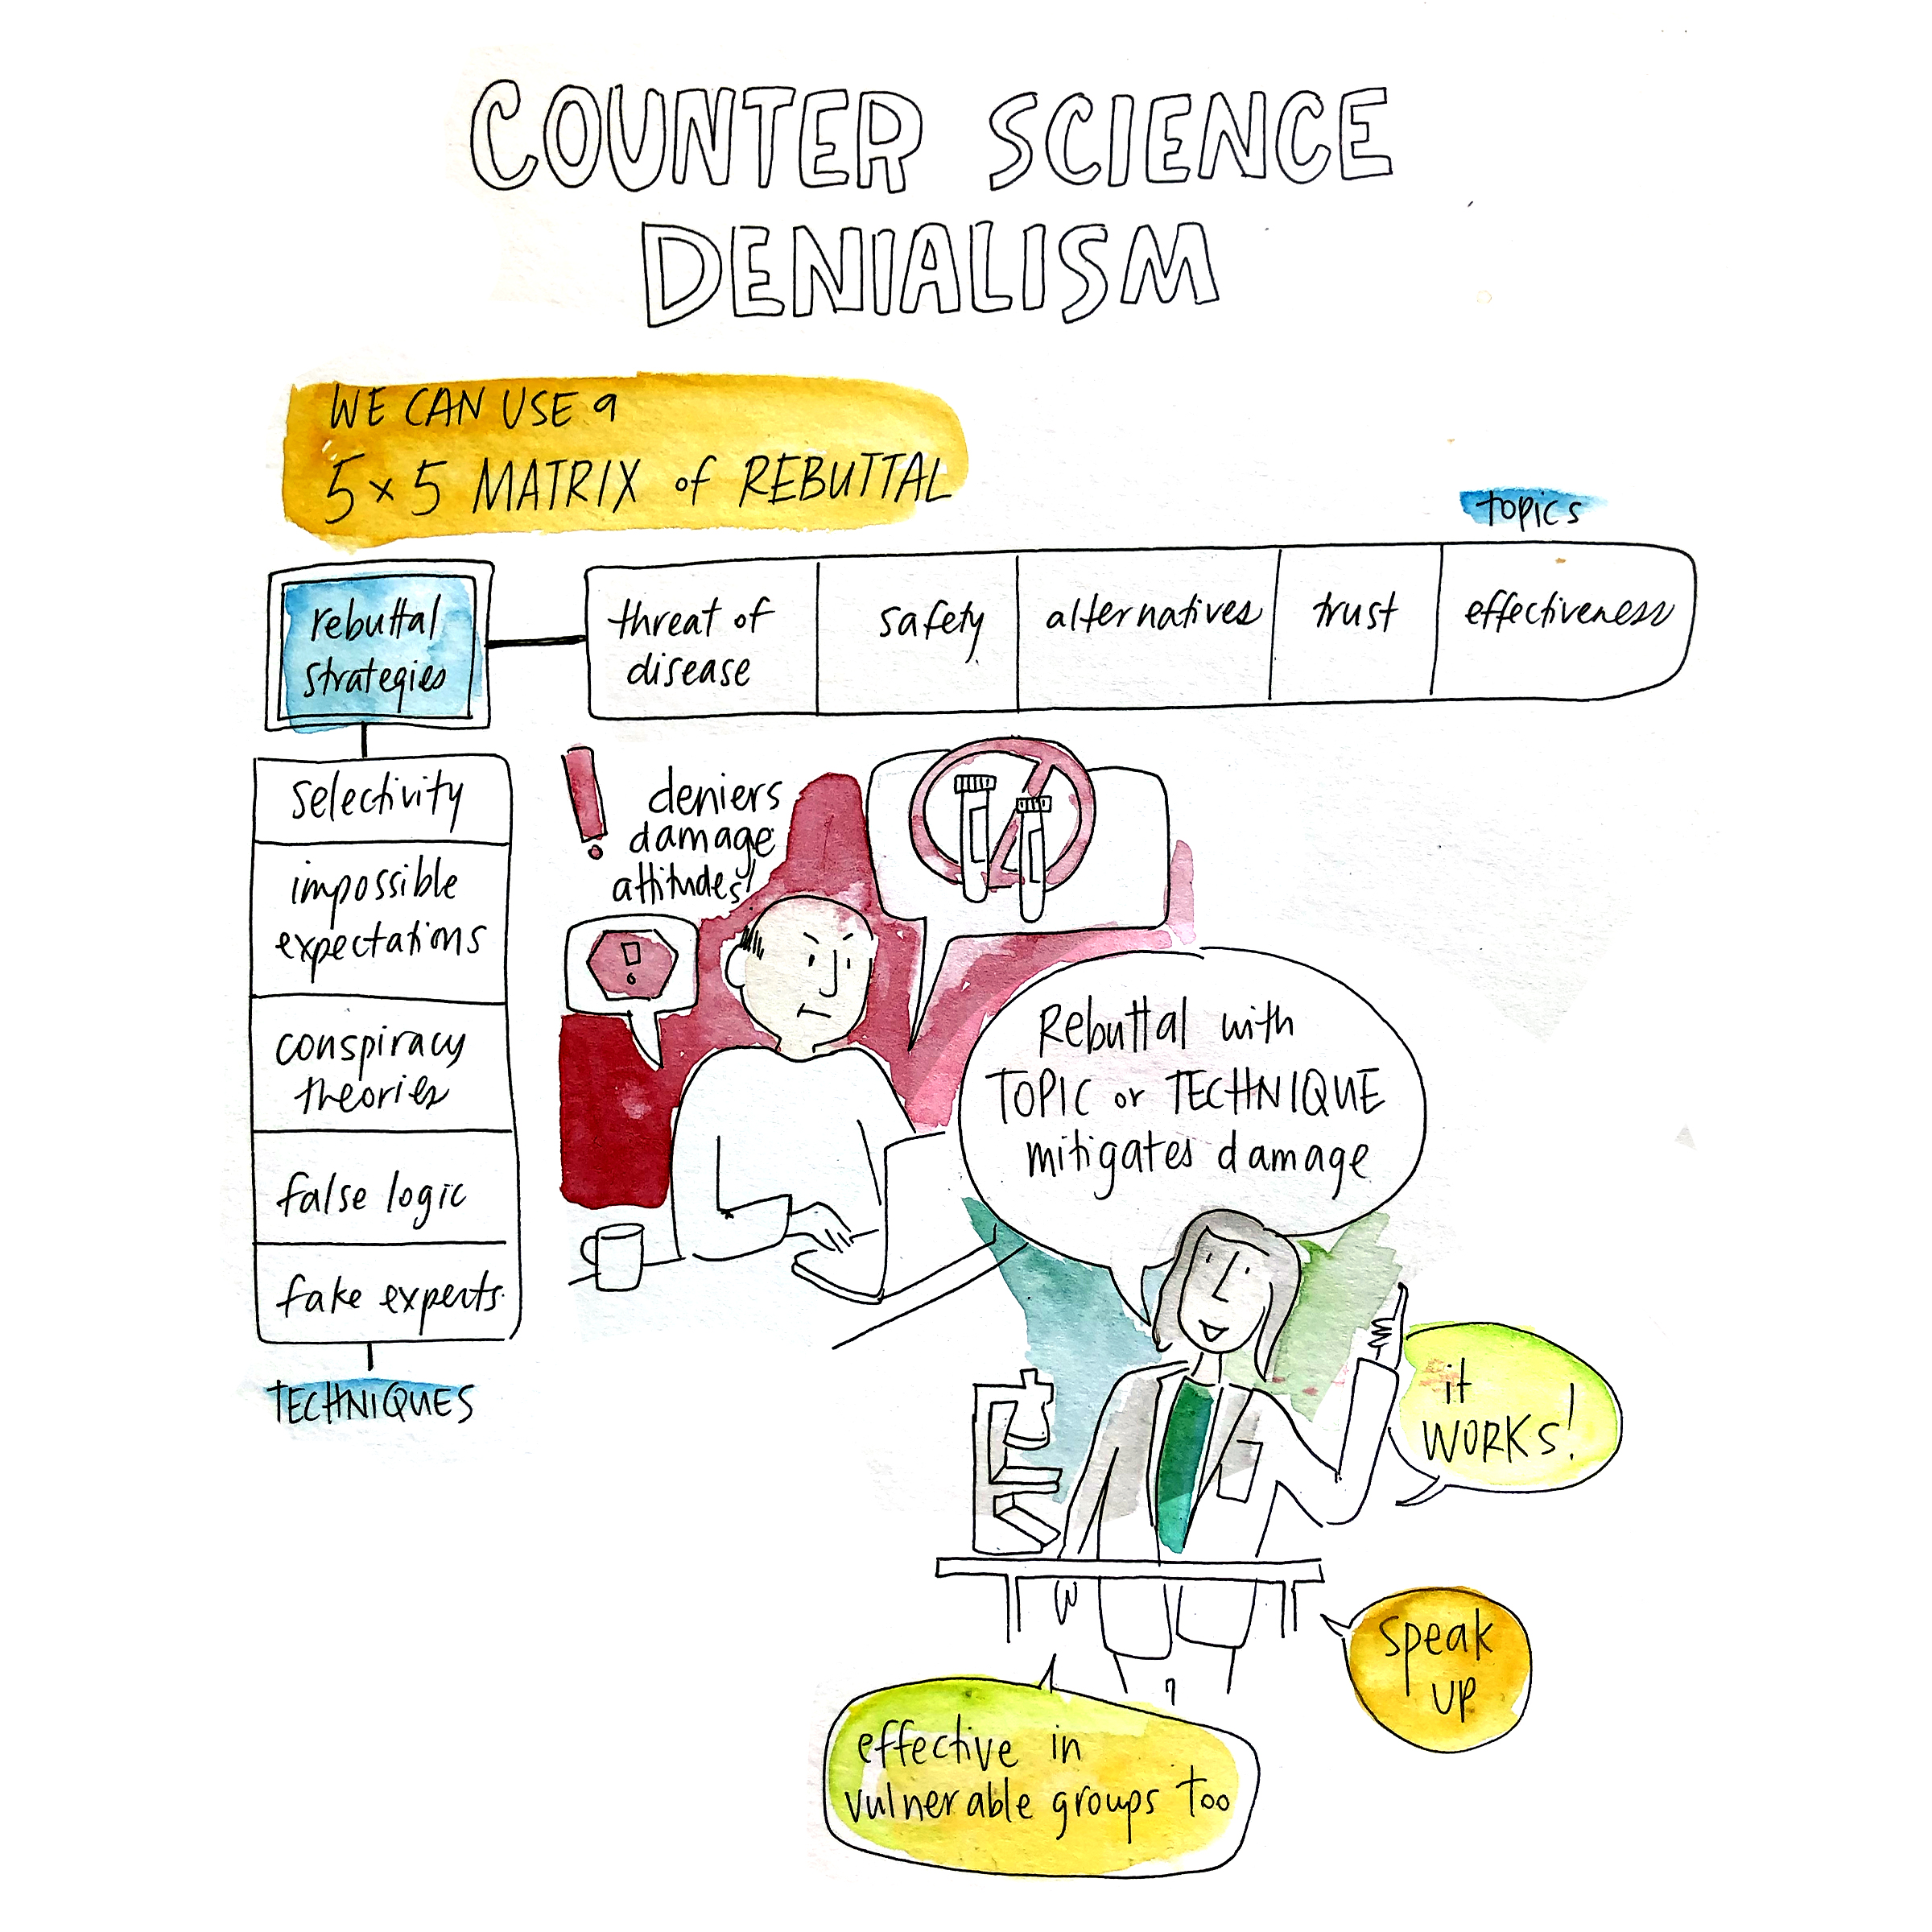 COUNTER SCIENCE
DENIALISM
WE CAN USE a
5 × 5 MATRIX of REBUTTAL
topics
rebuttal
strategies
threat of
disease
safety
alternatives
trust
effectiveness
selectivity
impossible
expectations
conspiracy
theories
false logic
fake experts
TECHNIQUES
deniers
damage
attitudes!
!
Rebuttal with
TOPIC or TECHNIQUE
mitigates damage
it
WORKS!
speak
UP
effective in
vulnerable groups too